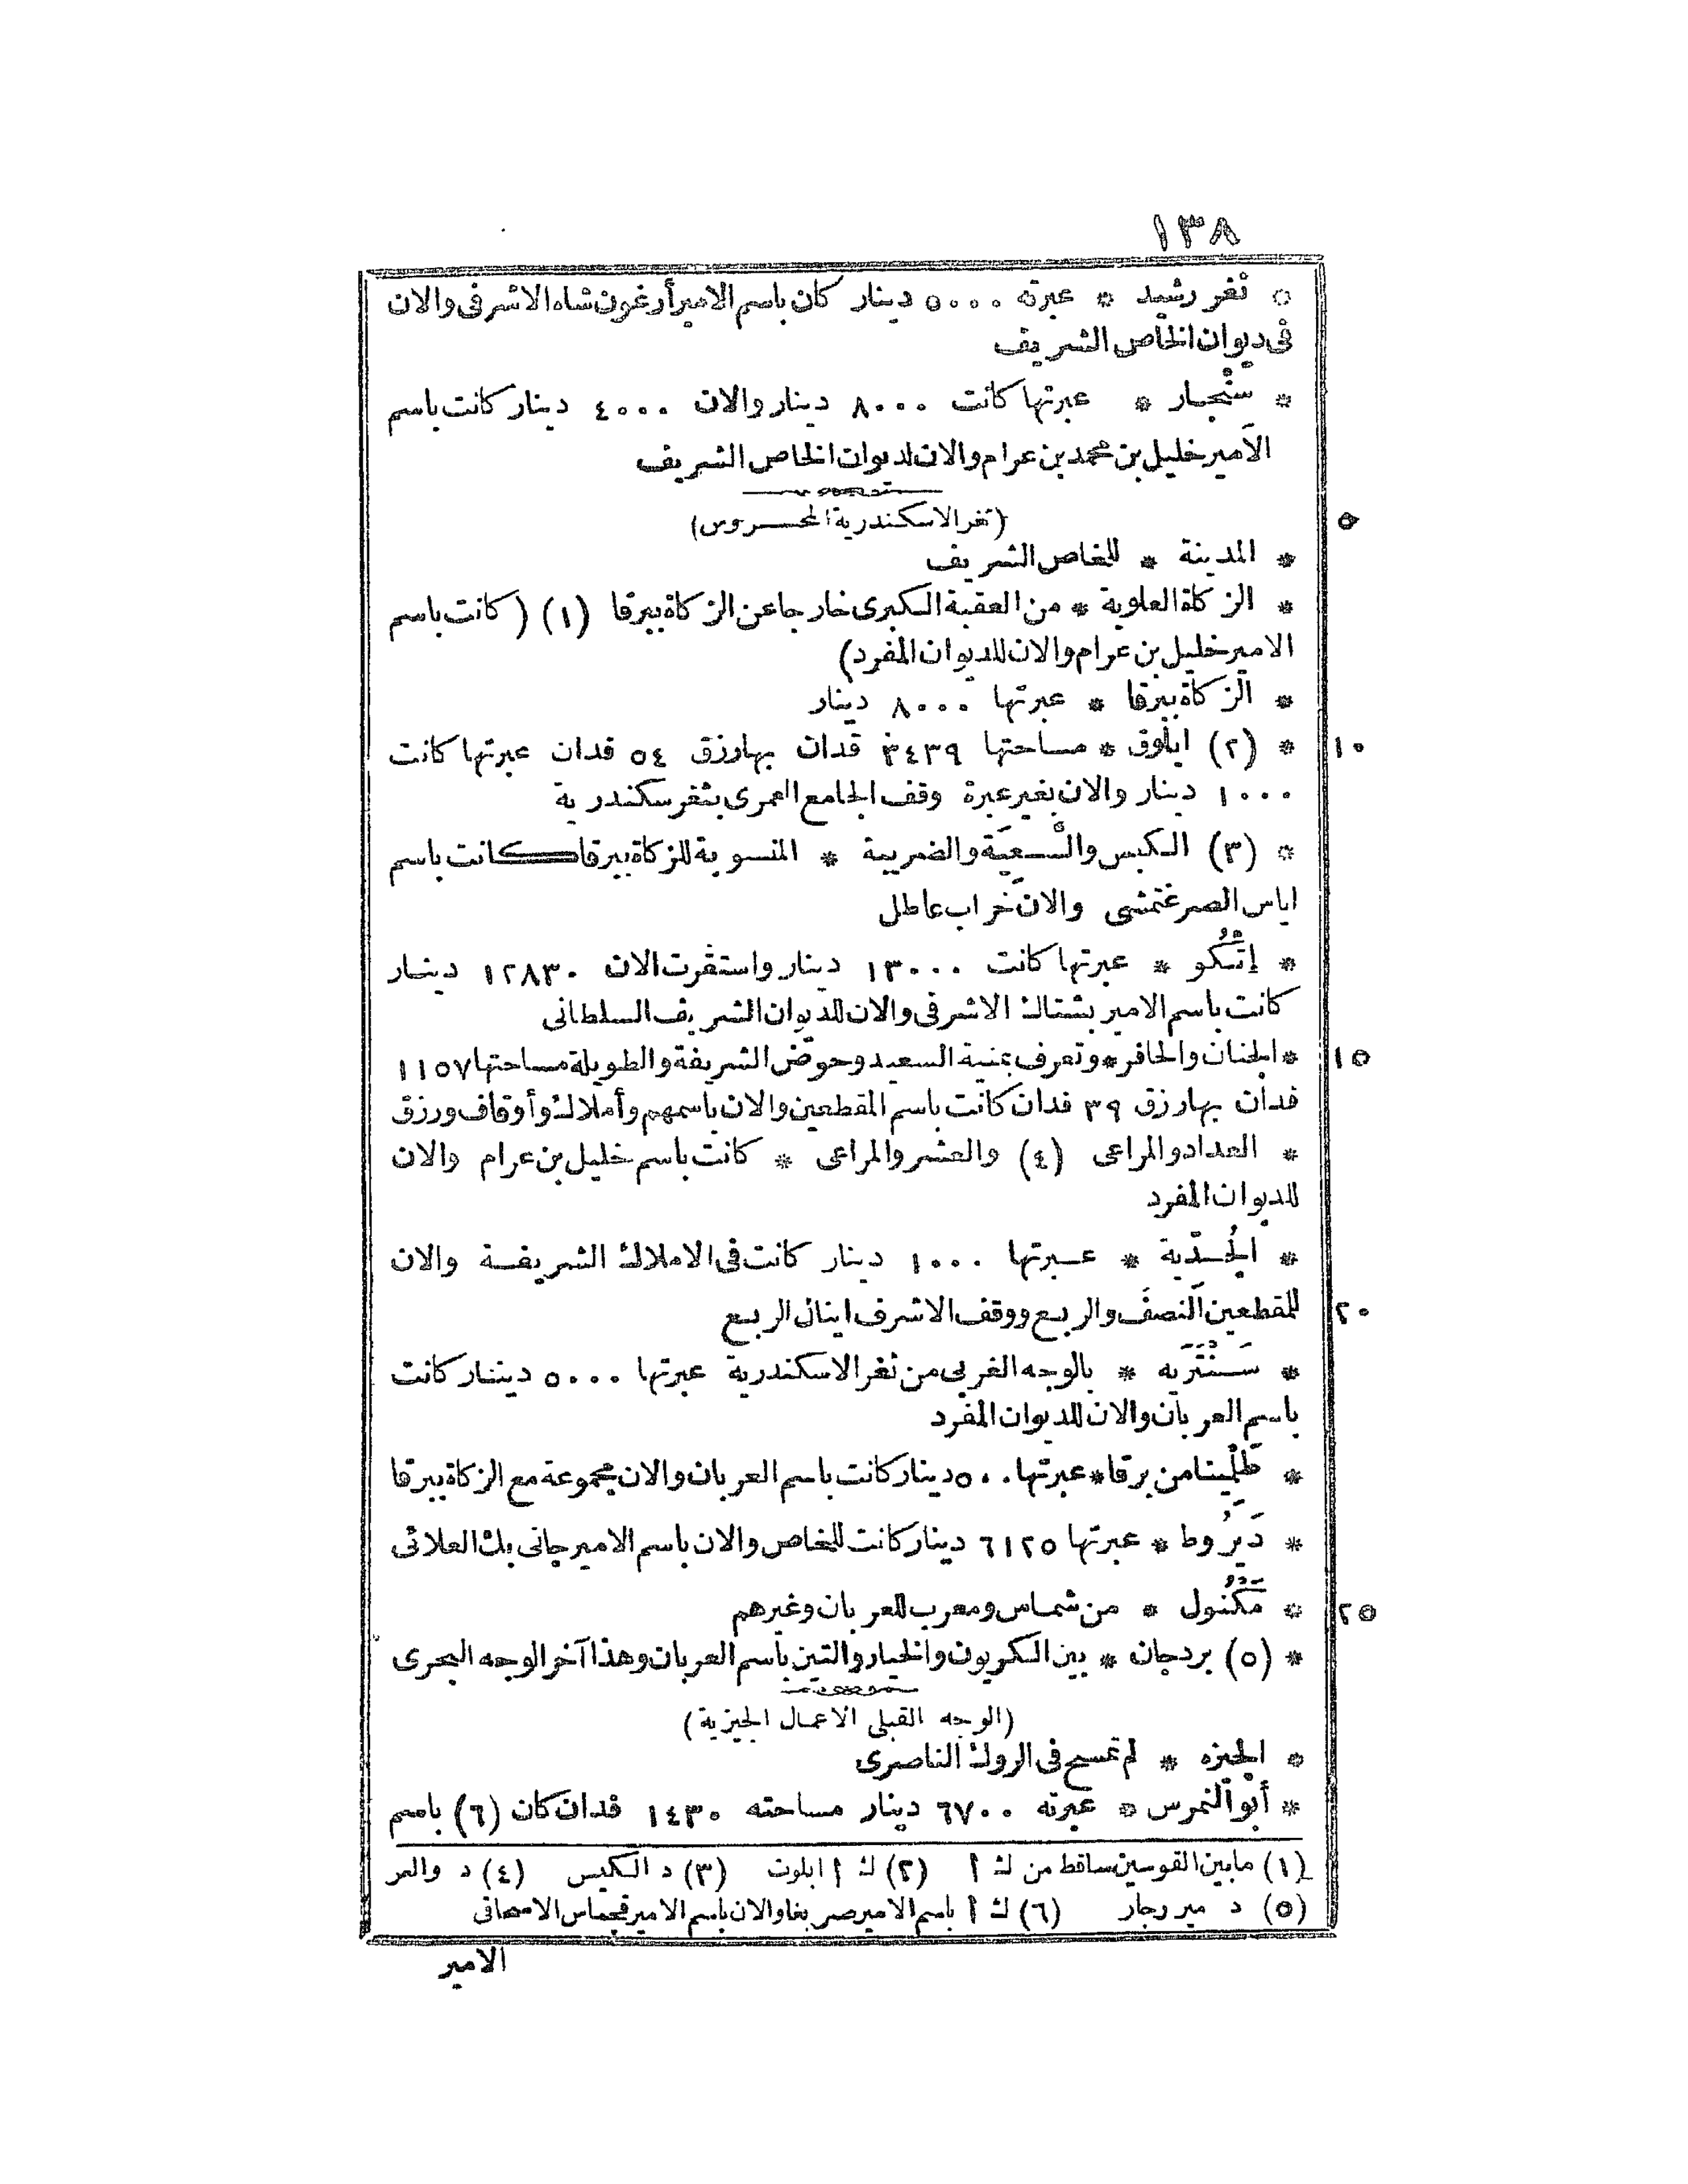 ١٣٨
* ثغر رشيد * عبرته ٥٠٠٠ دينار كان باسم الامير أرغون شاه الاشرفى والان
فى ديوان الخاص الشريف
* سنْجـار * عبرتها كانت ٨٠٠٠ دينار والان ٤٠٠٠ دينار كانت باسم
الامير خليل بن محمد بن عرام والان لديوان الخاص الشريف
(ثغر الاسكندرية المحـــروس)
٥
* المدينة * للخاص الشريف
* الزكاة العلوية * من العقبة الكبرى خارجا عن الزكاة ببرقا (١) (كانت باسم
الامير خليل بن عرام والان للديوان المفرد)
* الزكاة ببرقا * عبرتها ٨٠٠٠ دينار
* (٢) ابلوق * مساحتها ٣٤٣٩ فدان بها رزق ٥٤ فدان عبرتها كانت
١٠
١٠٠٠ دينار والان بغير عبرة وقف الجامع العمرى بثغر سكندرية
* (٣) الكبس والسـعيَة والضريبة * المنسوبة للزكاة ببرقا كانت باسم
اياس الصرغتمشى والان خراب عاطل
* إتْكُو * عبرتها كانت ١٣٠٠٠ دينار واستقرت الان ١٢٨٣٠ دينـار
كانت باسم الامير بشتاك الاشرفى والان للديوان الشريف السلطانى
* الجنان والحافر * وتعرف بمنية السعيد وحوض الشريفة والطويلة مساحتها ١١٥٧
١٥
فدان بها رزق ٣٩ فدان كانت باسم المقطعين والان باسمهم وأملاك وأوقاف ورزق
* العداد والمراعى (٤) والعشر والمراعى * كانت باسم خليل بن عرام والان
للديوان المفرد
* الجُـدّية * عـبرتها ١٠٠٠ دينار كانت فى الاملاك الشريفـة والان
للمقطعين النصف والربع ووقف الاشرف اينال الربع
٢٠
* سَـنْتَرَيه * بالوجه الغربى من ثغر الاسكندرية عبرتها ٥٠٠٠ دينـار كانت
باسم العربان والان للديوان المفرد
* طَلْميثا من برقا * عبرتها ٥٠٠ دينار كانت باسم العربان والان مجموعة مع الزكاة ببرقا
* دَيَرُوط * عبرتها ٦١٢٥ دينار كانت للخاص والان باسم الامير جانى بك العلائى
* مَكْنُول * من شماس ومعرب للعربان وغيرهم
٢٥
* (٥) بردجان * بين الكريون والخيار والتين باسم العربان وهذا آخر الوجه البحرى
(الوجه القبلى الاعمال الجيزية)
* الجيزه * لم تمسح فى الروك الناصرى
* أبو النمرس * عبرته ٦٧٠٠ دينار مساحته ١٤٣٠ فدان كان (٦) باسم
(١) مابين القوسين ساقط من ك أ (٢) ك أ ابلوت (٣) د الكيس (٤) د والعر
(٥) د مير رجار (٦) ك أ باسم الامير صر بغا والان باسم الامير قجماس الاسحاقى
الامير